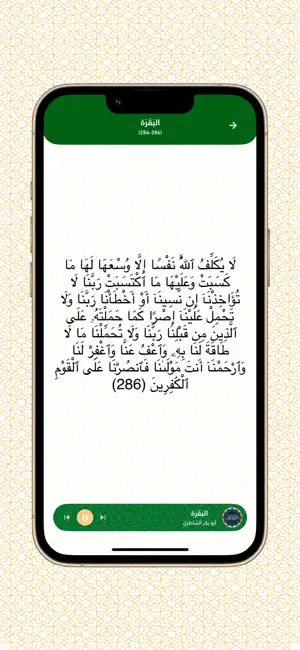 البَقَرَة
(286-286)
لَا يُكَلِّفُ ٱللَّهُ نَفْسًا إِلَّا وُسْعَهَا لَهَا مَا
كَسَبَتْ وَعَلَيْهَا مَا ٱكْتَسَبَتْ رَبَّنَا لَا
تُؤَاخِذْنَآ إِن نَّسِينَآ أَوْ أَخْطَأْنَا رَبَّنَا وَلَا
تَحْمِلْ عَلَيْنَآ إِصْرًا كَمَا حَمَلْتَهُۥ عَلَى
ٱلَّذِينَ مِن قَبْلِنَا رَبَّنَا وَلَا تُحَمِّلْنَا مَا لَا
طَاقَةَ لَنَا بِهِۦ وَٱعْفُ عَنَّا وَٱغْفِرْ لَنَا
وَٱرْحَمْنَآ أَنتَ مَوْلَىٰنَا فَٱنصُرْنَا عَلَى ٱلْقَوْمِ
ٱلْكَٰفِرِينَ (286)
البَقَرَة
أبو بكر الشاطري